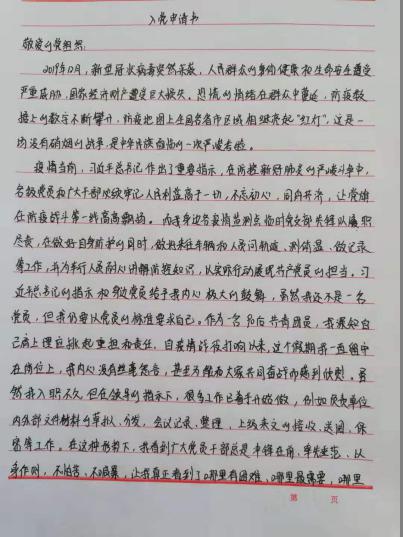 入党申请书
敬爱的党组织:
2019年12月,新型冠状病毒突然来袭,人民群众的身体健康和生命安全遭受
严重威胁,国家经济财产遭受巨大损失。恐慌的情绪在群众中蔓延,防疫数
据上的数字不断攀升,防疫地图上全国各省市区域相继亮起“红灯”,这是一
场没有硝烟的战争,是中华民族面临的一次严峻考验。
疫情当前,习近平总书记作出了重要指示,在防控新冠肺炎的严峻斗争中,
各级党员和广大干部必须牢记人民利益高于一切,不忘初心,同舟共济,让党旗
在防疫战斗第一线高高飘扬。而我身边各疫情监测点临时党支部先锋队履职
尽责,在做好自身防护的同时,做好来往车辆和人员问询、测体温、做记录
等工作,并为车行人员耐心讲解防控知识,以实际行动展现共产党员的担当。习
近平总书记的指示和身边党员给予我内心极大的鼓舞,虽然我还不是一名
党员,但我仍要以党员的标准要求自己。作为一名90后共青团员,我深知自
己肩上理应扛起重担和责任。自疫情战役打响以来,这个假期我一直坚守
在岗位上,我内心没有丝毫怨言,甚至为能和大家共同奋战而感到欣慰。虽
然我入职不久,但在领导的指示下,很多工作已着手开始做,例如负责单位
内外部文件材料的草拟、分发,会议记录、整理,上级来文的接收、送阅、保
密等工作。在这种形势下,我看到广大党员干部总是冲锋在前,率先垂范、以
身作则,不怕苦、不畏累,让我真正看到了哪里有困难、哪里最需要,哪里
第 页